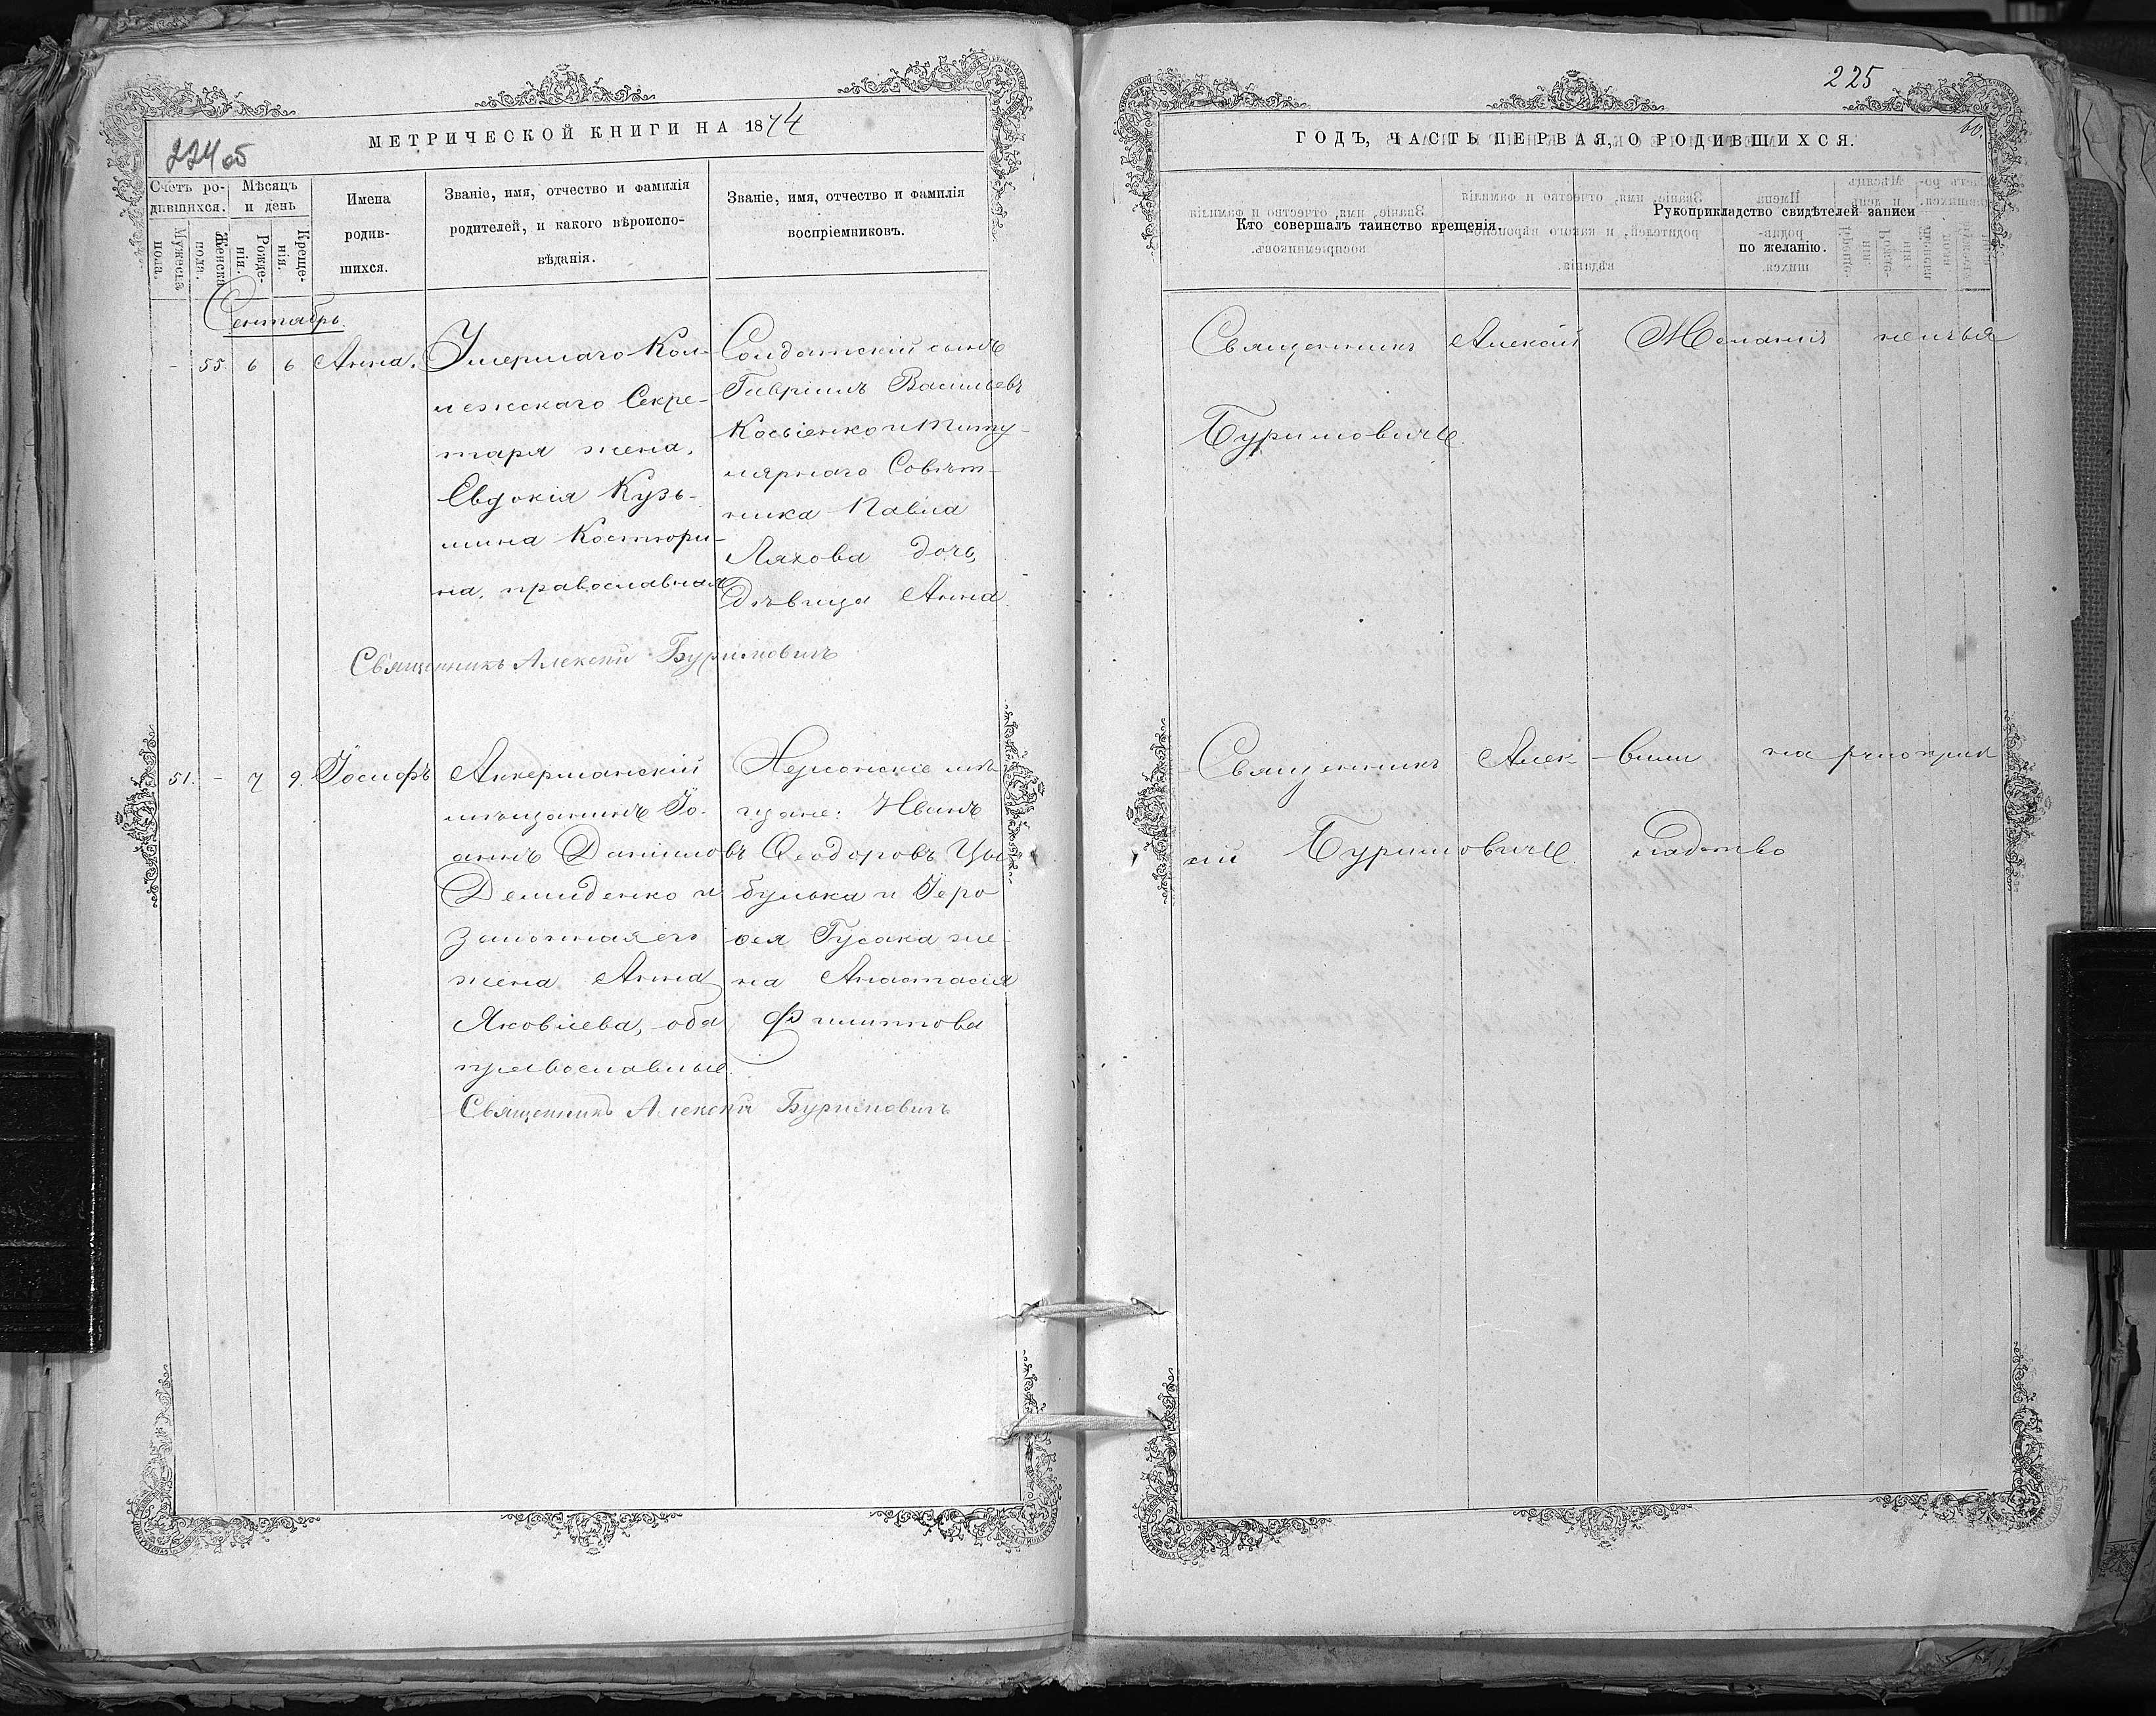 МЕТРИЧЕСКОЙ КНИГИ НА 1874
224 об
Счетъ ро-
дившихся.
Мѣсяцъ
и день
Мужеска
пола.
Женска
пола.
Рожде-
нія.
Креще-
нія.
Имена
родив-
шихся.
Званіе, имя, отчество и фамилія
родителей, и какого вѣроиспо-
вѣданія.
Званіе, имя, отчество и фамилія
воспріемниковъ.
Сентябрь.
- 55 6 6 Анна.
Умершаго Кол-
лежскаго Секре-
таря жена,
Евдокія Кузь-
мина Костюри-
на, православная
Солдатскій сынъ
Гавріилъ Васильевъ
и Титу-
лярнаго Совѣт-
ника Павла
Ляхова дочь,
Дѣвица Анна.
Священникъ Алексій Буримовичъ
51. - 7 9. Іосифъ
Аккерманскій
мѣщанинъ Іо-
аннъ Даниловъ
Демиденко и
законная его
жена Анна
Яковлева, оба
православные.
Херсонскіе мѣ-
щане: Иванъ
Ѳеодоровъ Цы-
булька и Іеро-
ѳея Гусака же-
на Анастасія
Филиппова
Священникъ Алексій Буримовичъ
225
60.
ГОДЪ, ЧАСТЬ ПЕРВАЯ, О РОДИВШИХСЯ.
Кто совершалъ таинство крещенія.
Рукоприкладство свидѣтелей записи
по желанію.
Священникъ Алексій
Буримовичъ.
Желанія
Священникъ Алек-
сій Буримовичъ.
на рукоприк
ладство